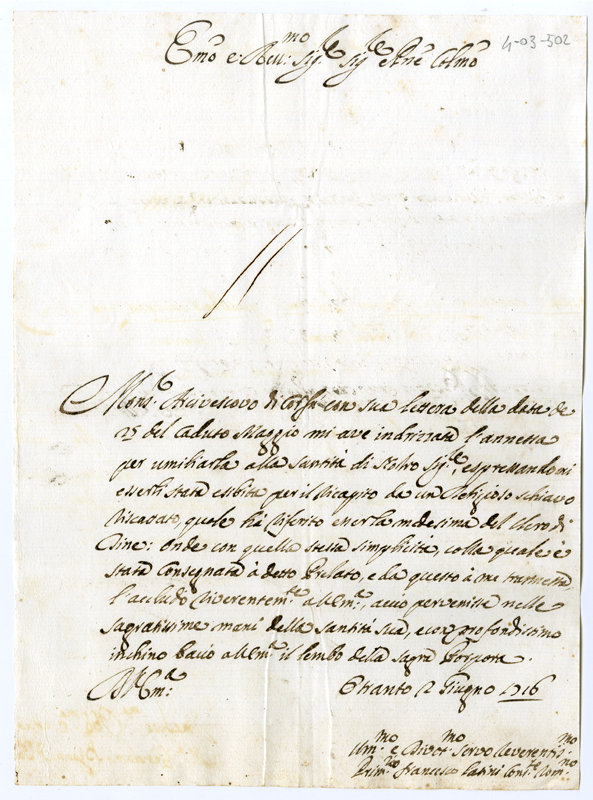 4-03-502
Emo e Reu:mo Sig.re Sig.re Pne Colmo
Mons.r Arcivescovo di Corfu con sua lettera della data de
25 del caduto Maggio mi ave indrizzata l'annessa
per umiliarla alla Santità di Nostro Sig.re, espressandomi
esserli stata esibita per il ricapito da un Religioso schiavo
riscattato, quale hà riferito esser la medesima del Clero di
Tine: onde con quella stessa simplicità, colla quale è
stata consegnata à detto Prelato, e da questo à me trasmessa
l'accludo riverentem.te all'Em.a, acciò pervenisse nelle
sagratissime mani della Santità Sua, e con profondissimo
inchino bacio all'Em.a il lembo della sagra Porpora.
Otranto 2 Giugno 1716
Um.mo e Divot.mo Servo Reverentis.mo
Francesco Latini